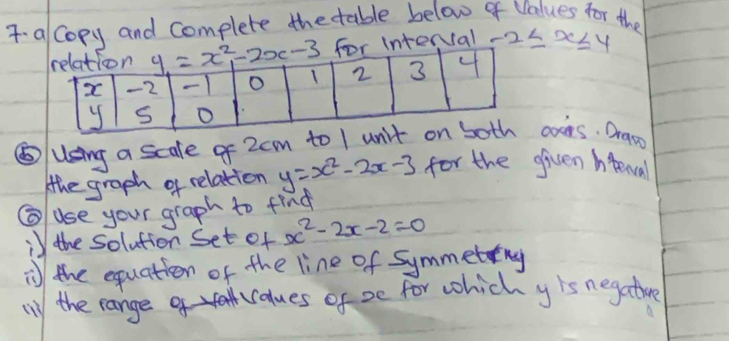 7. a) Copy and Complete the table below of Values for the
relation y = x² - 2x - 3 for interval -2 ≤ x ≤ 4
x | -2 | -1 | 0 | 1 | 2 | 3 | 4
y | 5 | 0
(b) Using a scale of 2cm to 1 unit on both axis. Draw
the graph of relation y = x² - 2x - 3 for the given interval
(c) Use your graph to find
i) the solution Set of x² - 2x - 2 = 0
ii) the equation of the line of Symmetry
iii) the range of values of x for which y is negative